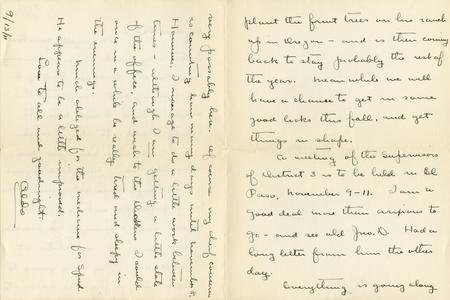 plant the fruit trees on his ranch
up in Oregon - and is then coming
back to stay probably the rest of
the year. Meanwhile we will
have a chance to get in some
good licks this fall, and get
things in shape.
A meeting of the Supervisors
of District 3 is to be held in El
Paso, November 9-11. I am a
good deal more than anxious to
go - and see old Jno. D. Had a
long letter from him the other
day.
Everything is going along
very passably here. Of course my chief concern
is counting how many days until November 4.
However, I manage to do a little work between
times - although I am getting a little stale
of the office, and wish to the dickens I could
once in a while be really tired and sleepy in
the evenings.
Much obliged for the medicine for Spud.
He appears to be a little improved.
Love to all and goodnight.
Aldo
9/13/11